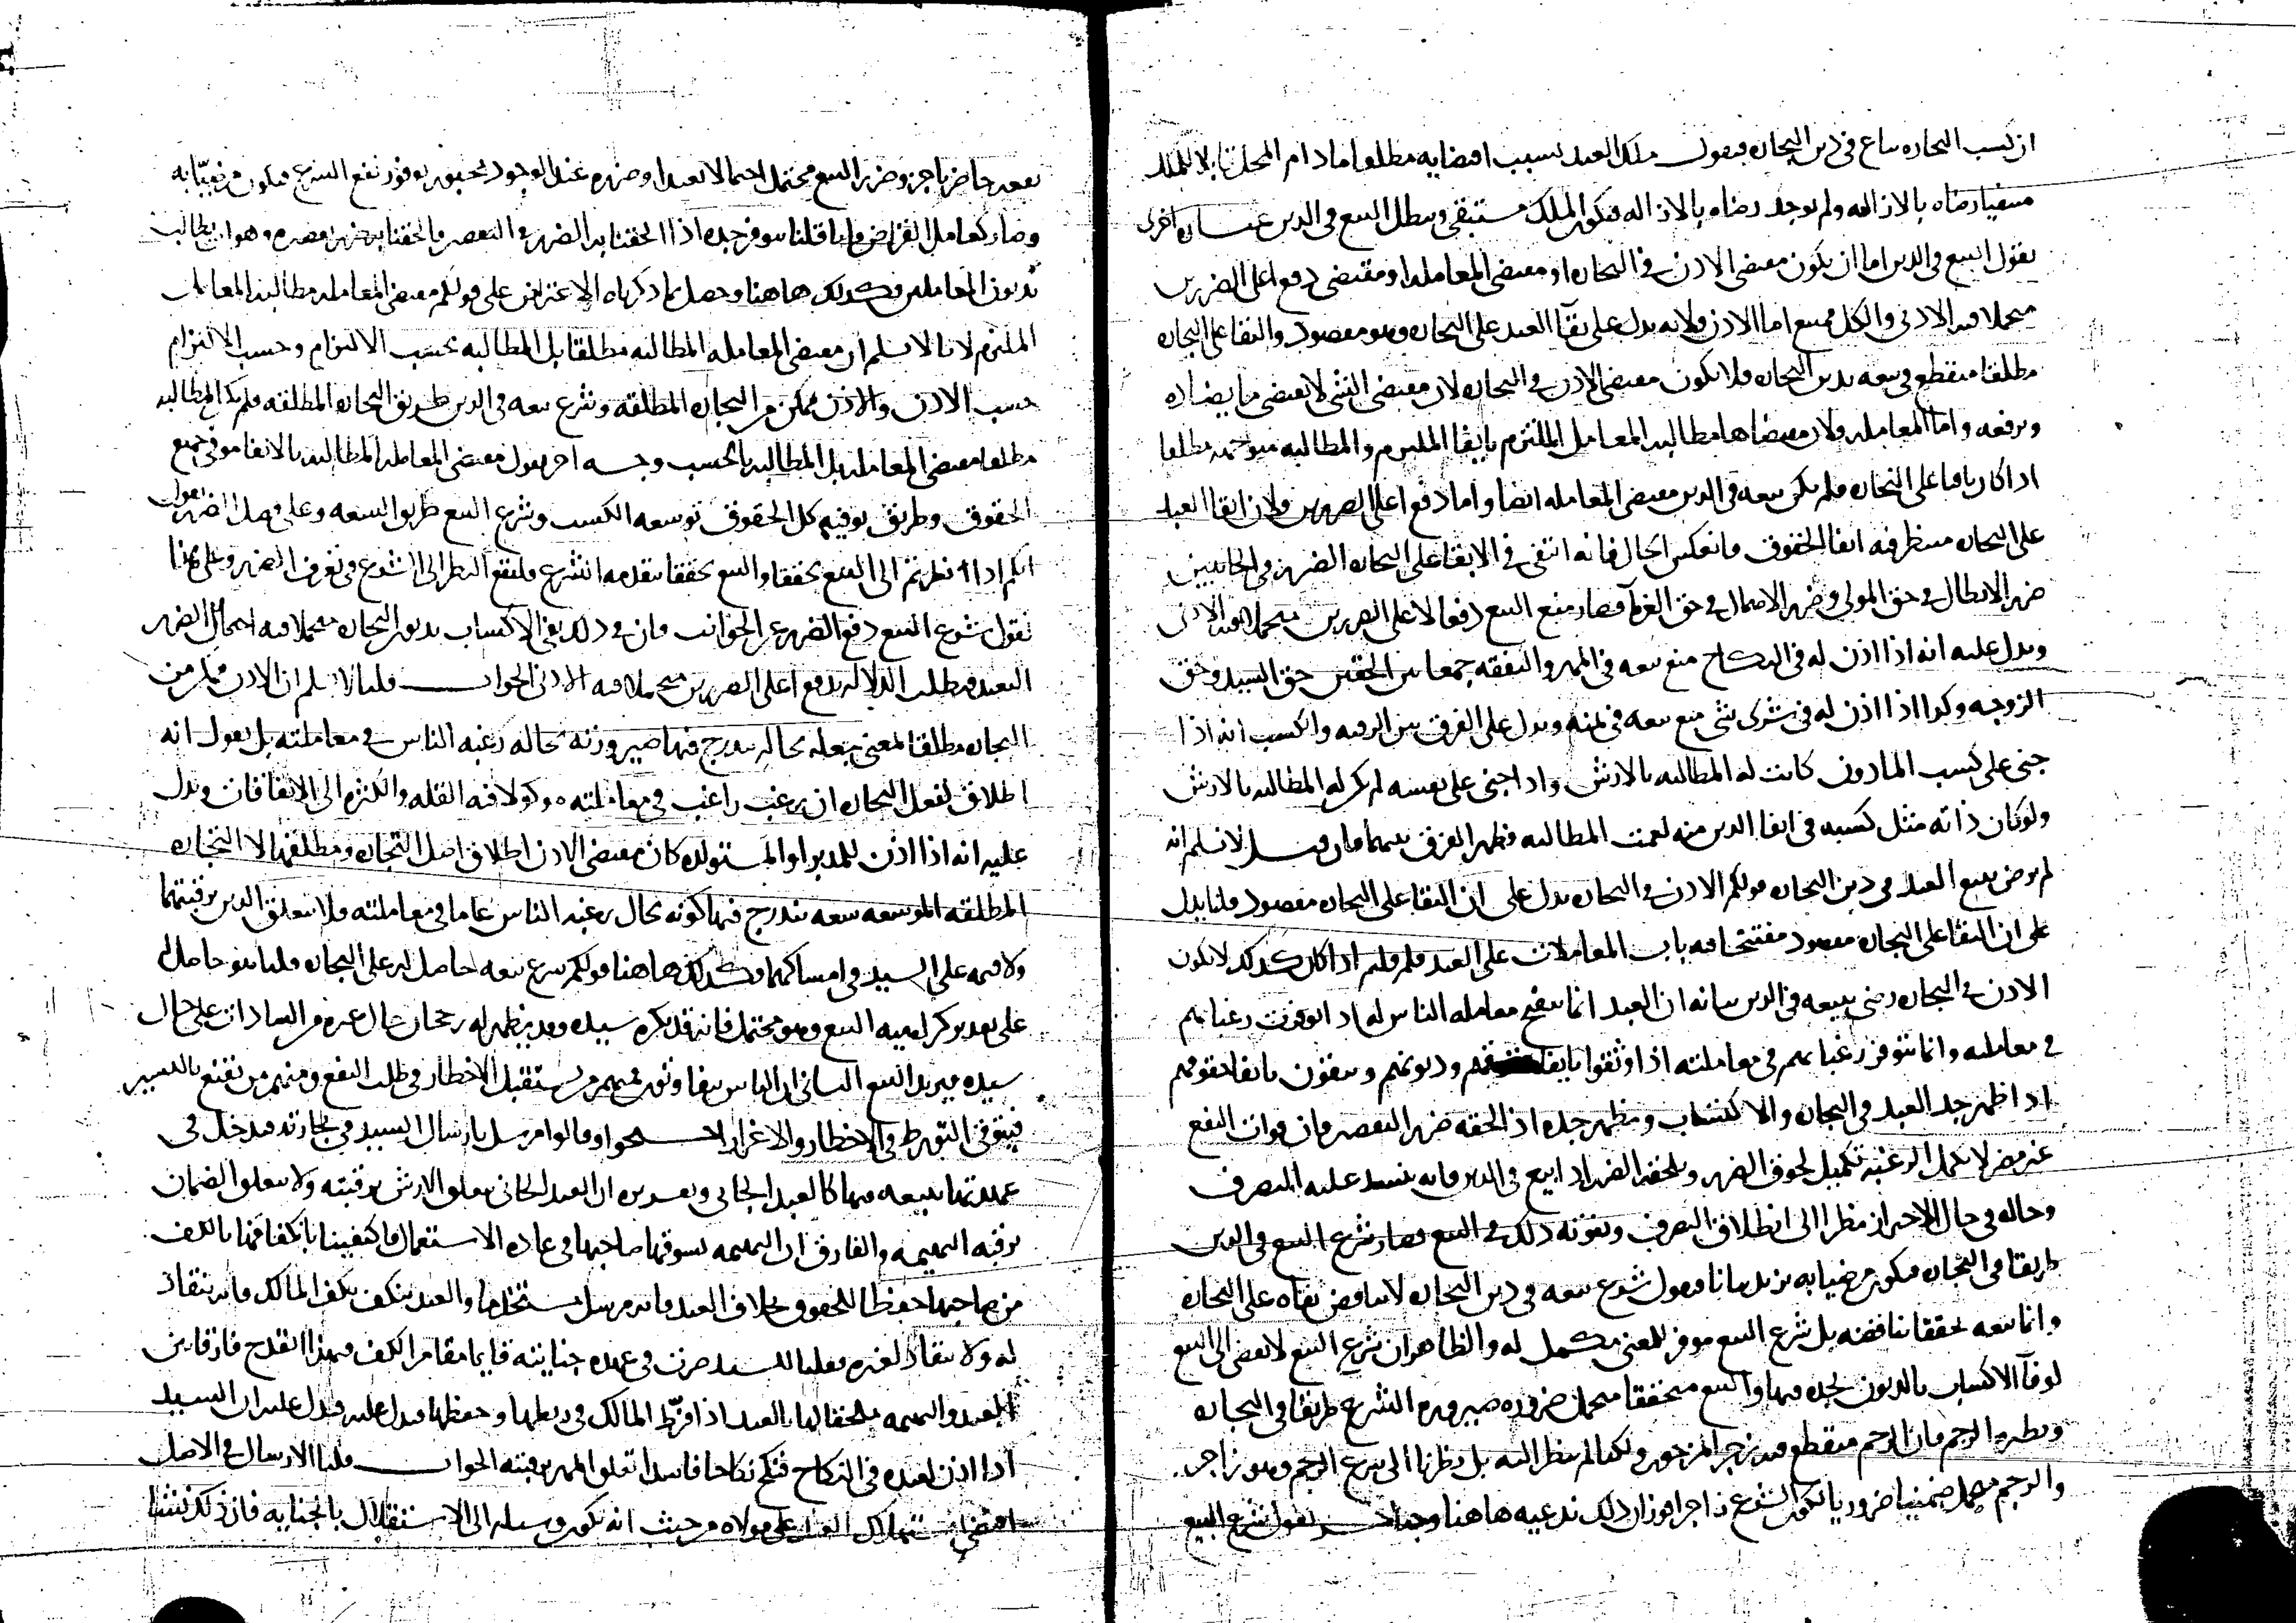 ان كسب التجارة يباع في دين التجارة فيقول ملك العبد لسبب اقتضابه مطلقا ما دام المحل قابلا للملك
منفيا رضاه بالازالة ولم يوجد رضاه بالازالة فيكون الملك مستبقى ويبطل البيع في الدين عبارة اخرى
نقول البيع في الدين اما ان يكون مقتضى الاذن في التجارة او مقتضى المعاملة او مقتضى دفع اعلى الضررين
متحملا فيه الادنى والكل ممتنع اما الاذن فلانه يدل على بقاء العبد على التجارة وهو مقصود والبقا على التجارة
مطلقا منقطع في بيعه بدين التجارة فلا يكون مقتضى الاذن في التجارة لان مقتضى الشي لا يقتضي ما يضاده
ويرفعه واما المعاملة فلان مقتضاها مطالبة المعامل الملتزم بايفا الملتزم والمطالبة متوجهة مطلقا
اذا كان باقيا على التجارة فلم يكن بيعه في الدين مقتضى المعاملة ايضا واما دفع اعلى الضررين فلان ابقا العبد
على التجارة منتظر فيه ايفا الحقوق فانعكس الحال فانه انتفى في الابقا على التجارة الضرر في الجانبين
ضرر الابطال في حق المولى وضرر الاهمال في حق الغرما فصار منع البيع دفعا لاعلى الضررين متحملا فيه الادنى
ويدل عليه انه اذا اذن له في النكاح منع بيعه في المهر والنفقة جمعا بين الحقين حق السيد وحق
الزوجة وكذا اذا اذن له في شرى شي منع بيعه في ثمنه ويدل على الفرق بين الرقبة والكسب انه اذا
جنى على كسب الماذون كانت له المطالبة بالارش واذا جنى على نفسه لم يكن له المطالبة بالارش
ولو كان ذاته مثل كسبه في ايفا الدين منه لعمت المطالبة فظهر الفرق بينهما فان قيل لا نسلم انه
لم يرض ببيع العبد في دين التجارة قولكم الاذن في التجارة يدل على ان البقا على التجارة مقصود قلنا يدل
على ان البقا على التجارة مقصود مفتتحا فيه باب المعاملات على العبد فلم قلتم اذا كان كذلك لا يكون
الاذن في التجارة رضى ببيعه في الدين بيانه ان العبد انما ينفتح معاملة الناس له اذا توفرت رغباتهم
في معاملته وانما تتوفر رغباتهم في معاملته اذا وثقوا بايفا ديونهم ويثقون بايفا حقوقهم
اذا ظهر جد العبد في التجارة والاكتساب ويظهر جده اذا لحقه ضرر التقصير فان فوات النفع
غير مضر لا تكمل الرغبة تكميل لحوق الضرر ويلحقه الضرر اذا بيع في الدين فانه ينسد عليه التصرف
وحاله في حال الاحتراز نظرا الى انطلاق التصرف وتفوته ذلك في البيع فصار شرع البيع في الدين
طريقا في التجارة فيكون مرضيا به يزيده بيانا فيقول شرع بيعه في دين التجارة لا يناقض بقاه على التجارة
وانما بيعه تحققا يناقضه بل شرع البيع موفر للمعنى مكمل له والظاهر ان شرع البيع لا يفضي الى البيع
لوفا الاكتساب بالديون لجده فيها والبيع متحققا متحمل ضرورة صيرورة الشرع طريقا في التجارة
ونظيره الرجم فان الرجم منقطع فيه زجر المزجور ولكنا لم ننظر اليه بل نظرنا الى شرع الرجم وهو زاجر
والرجم محمل ضمنيا ضروريا لكون الشرع زاجرا فوزان ذلك ندعيه هاهنا وجه اخر نقول شرع البيع
نفعه حاضر ناجز وضرر البيع محتمل احتمالا بعيدا وضرره عند الوجود تحيق يوفور نفع الشرع فيكون مرضيا به
وصار كعامل القراض وانا قلنا يتوفر جده اذا الحقنا به الضرر في التقصير والحقنا به ضرر تقصيره وهو ان يطالب
بديون المعاملين فكذلك هاهنا وحصل بما ذكرناه الاعتراض على قولكم مقتضى المعاملة مطالبة المعامل
الملتزم لانا لا نسلم ان مقتضى المعاملة المطالبة مطلقا بل المطالبة بحسب الالتزام وحسب الالتزام
حسب الاذن والاذن تمكن من التجارة المطلقة وشرع بيعه في الدين طريق التجارة المطلقة فلم يك المطالبة
مطلقا مقتضى المعاملة بل المطالبة بالحسب وجه اخر نقول مقتضى المعاملة المطالبة بالايفا موفي جميع
الحقوق وطريق توفية كل الحقوق توسعة الكسب وشرع البيع طريق السعة وعلى فصل الضرر نقول
انكم اذا نظرتم الى البيع تحققا والبيع تحققا يتقدمه الشرع فليقع النظر الى الشروع في تعرف الضرر وعلى هذا
نقول شرع البيع دفع الضرر عن الجوانب فان في ذلك يفي الاكتساب بديون التجارة متحملا فيه احتمال الضرر
البعيد فبطلت الدلالة بدفع اعلى الضررين متحملا فيه الادنى الجواب قلنا لا نسلم ان الاذن تمكن من
التجارة مطلقا بمعنى جعله بحالة يندرج فيها صيرورته بحاله رغبة الناس في معاملته بل نقول انه
اطلاق لفعل التجارة ان يرغب راغب في معاملته موكولا فيه القلة والكثرة الى الاتفاقات ويدل
عليه انه اذا اذن للمدبر او المستولدة كان مقتضى الاذن اطلاق اصل التجارة ومطلقها لا التجارة
المطلقة الموسعة سعة يندرج فيها كونه بحال رغبة الناس عاما في معاملته فلا يتعلق الدين برقبتهما
ولا قيمة على السيد في امساكهما فكذلك هاهنا قولكم شرع بيعه حاصل له على التجارة قلنا هو حاصل
على تقدير كراهية البيع وهو محتمل فانه قد يكره سيده وقد يظهر له رجحان حال غيره من السادات على حال
سيده فيريد البيع الثاني ان الناس يتفاوتون فمنهم من يستقبل الاخطار في طلب النفع ومنهم من يقنع باليسير
فيتوقى التورط في الاخطار والاغرار احتجوا وقالوا من سل بارسال السيد في تجارته فيدخل في
عهدتها ببيعه فيها كالعبد الجاني وتقديره ان العبد الجاني يتعلق الارش برقبته ولا يتعلق الضمان
برقبة البهيمة والفارق ان البهيمة يسوقها صاحبها في عادة الاستعمال فاكتفينا بانكفافها بالكف
من صاحبها حفظا للحقوق بخلاف العبد فانه مرسل مستخدما والعبد ينكف بكف المالك فانه ينقاد
له ولا ينقاد لغيره فقلنا للسيد صرت في عهدة جنايته قايما مقام الكف فبهذا انقدح فارقا بين
العبد والبهيمة يلحقانها بالعبد اذا فرط المالك في ربطها وحفظها فدل عليه ان السيد
اذا اذن لعبده في النكاح فنكح نكاحا فاسدا تعلق المهر برقبته الجواب قلنا الارسال في الاصل
اقتضى استهلاك العبد على مولاه من حيث انه تكون وسيلة الى الاستقلال بالجناية فان ذلك نشأ